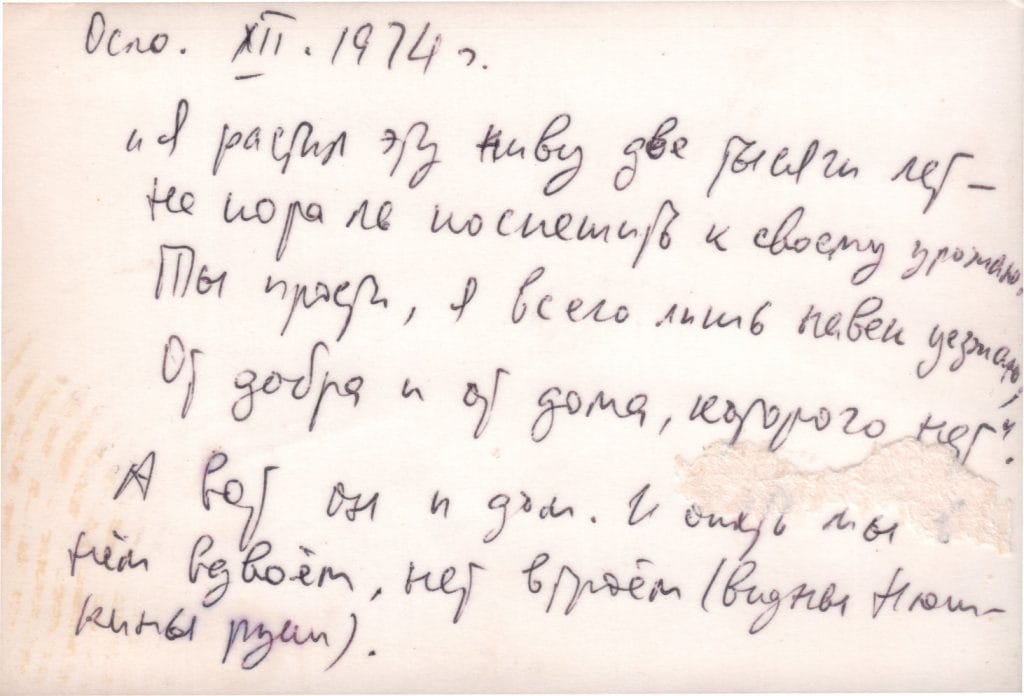 Осло. XII. 1974 г.
"Я растил эту ниву две тысячи лет –
Не пора ль поспешить к своему урожаю.
Ты прости, я всего лишь навек уезжаю
От добра и от дома, которого нет".
А вот он и дом. И опять мы в
нём вдвоём, нет втроём (видны Нюш-
кины руки).